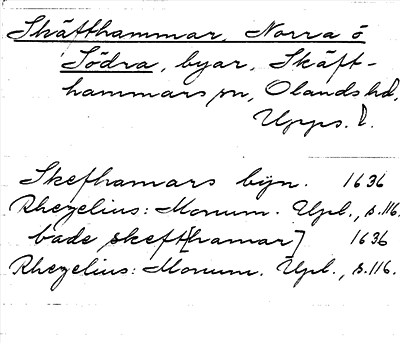 Skäfthammar, Norra o
Södra, byar, Skäft-
hammars sn, Olands hd,
Upps. l.
Skefhamars byn. 1636
Rhezelius: Monum. Upl., s. 116.
bade skeft[hamar] 1636
Rhezelius: Monum. Upl., s. 116.